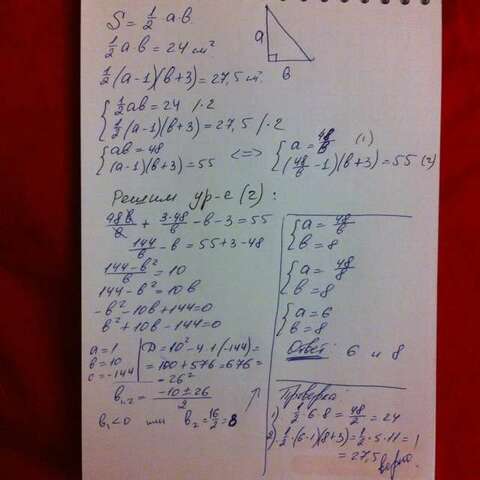 S = 1/2 · a·b
1/2 a·b = 24 см²
a
b
1/2 (a-1)(b+3) = 27,5 м²
{ 1/2 ab = 24 /·2
1/2 (a-1)(b+3) = 27,5 /·2
{ ab = 48
(a-1)(b+3) = 55
<=>
{ a = 48/b (1)
(48/b - 1)(b+3) = 55 (2)
Решим ур-е (2) :
48b/b + 3·48/b - b - 3 = 55
144/b - b = 55+3-48
(144-b²)/b = 10
144 - b² = 10b
-b² - 10b + 144 = 0
b² + 10b - 144 = 0
a = 1
b = 10
c = -144
D = 10² - 4 · (-144) =
= 100 + 576 = 676 =
= 26²
b1,2 = (-10 ± 26)/2
b1 < 0 или b2 = 16/2 = 8
{ a = 48/b
b = 8
{ a = 48/8
b = 8
{ a = 6
b = 8
Ответ: 6 и 8
Проверка:
1) 1/2 · 6 · 8 = 48/2 = 24
2) 1/2 · (6-1)(8+3) = 1/2 · 5 · 11 =
= 27,5
верно.